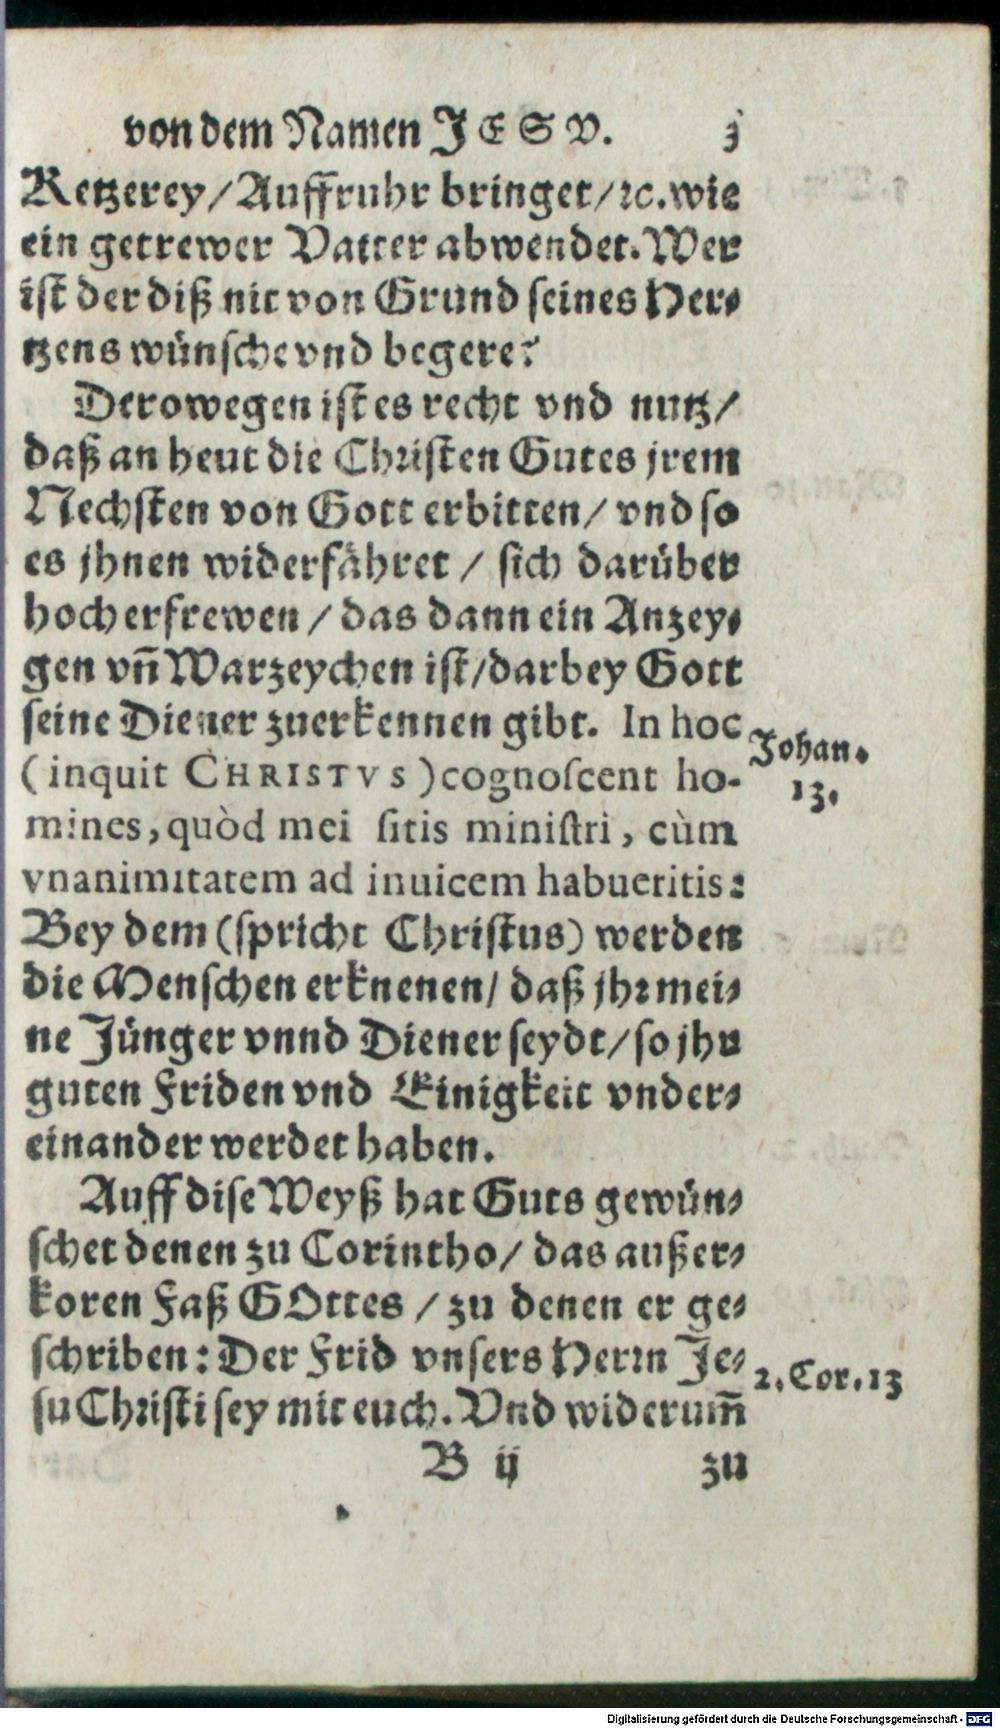 von dem Namen JESV. 3
Ketzerey/Auffruhr bringet/ꝛc.wie
ein getrewer Vatter abwendet. Wer
ist der diß nit von Grund seines Her⸗
tzens wünsche vnd begere?
Derowegen ist es recht vnd nutz/
daß an heut die Christen Gutes jrem
Nechsten von Gott erbitten/ vnd so
es jhnen widerfähret / sich darüber
hoch erfrewen / das dann ein Anzey⸗
gen vñ Warzeychen ist/darbey Gott
seine Diener zuerkennen gibt. In hoc
(inquit CHRISTVS) cognoſcent ho-
mines, quòd mei ſitis miniſtri, cùm
vnanimitatem ad inuicem habueritis:
Johan.
13.
Bey dem (spricht Christus) werden
die Menschen erknenen/ daß jhr mei⸗
ne Jünger vnnd Diener seydt/ so jhr
guten Friden vnd Einigkeit vnder⸗
einander werdet haben.
Auff dise Weyß hat Guts gewün⸗
schet denen zu Corintho/ das außer⸗
koren Faß GOttes / zu denen er ge⸗
schriben: Der Frid vnsers Herrn Je⸗
su Christi sey mit euch. Vnd widerum̃
2. Cor. 13
B ij zu
Digitalisierung gefördert durch die Deutsche Forschungsgemeinschaft - DFG